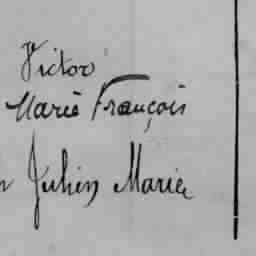 Victor
Marie François
Julien Marie